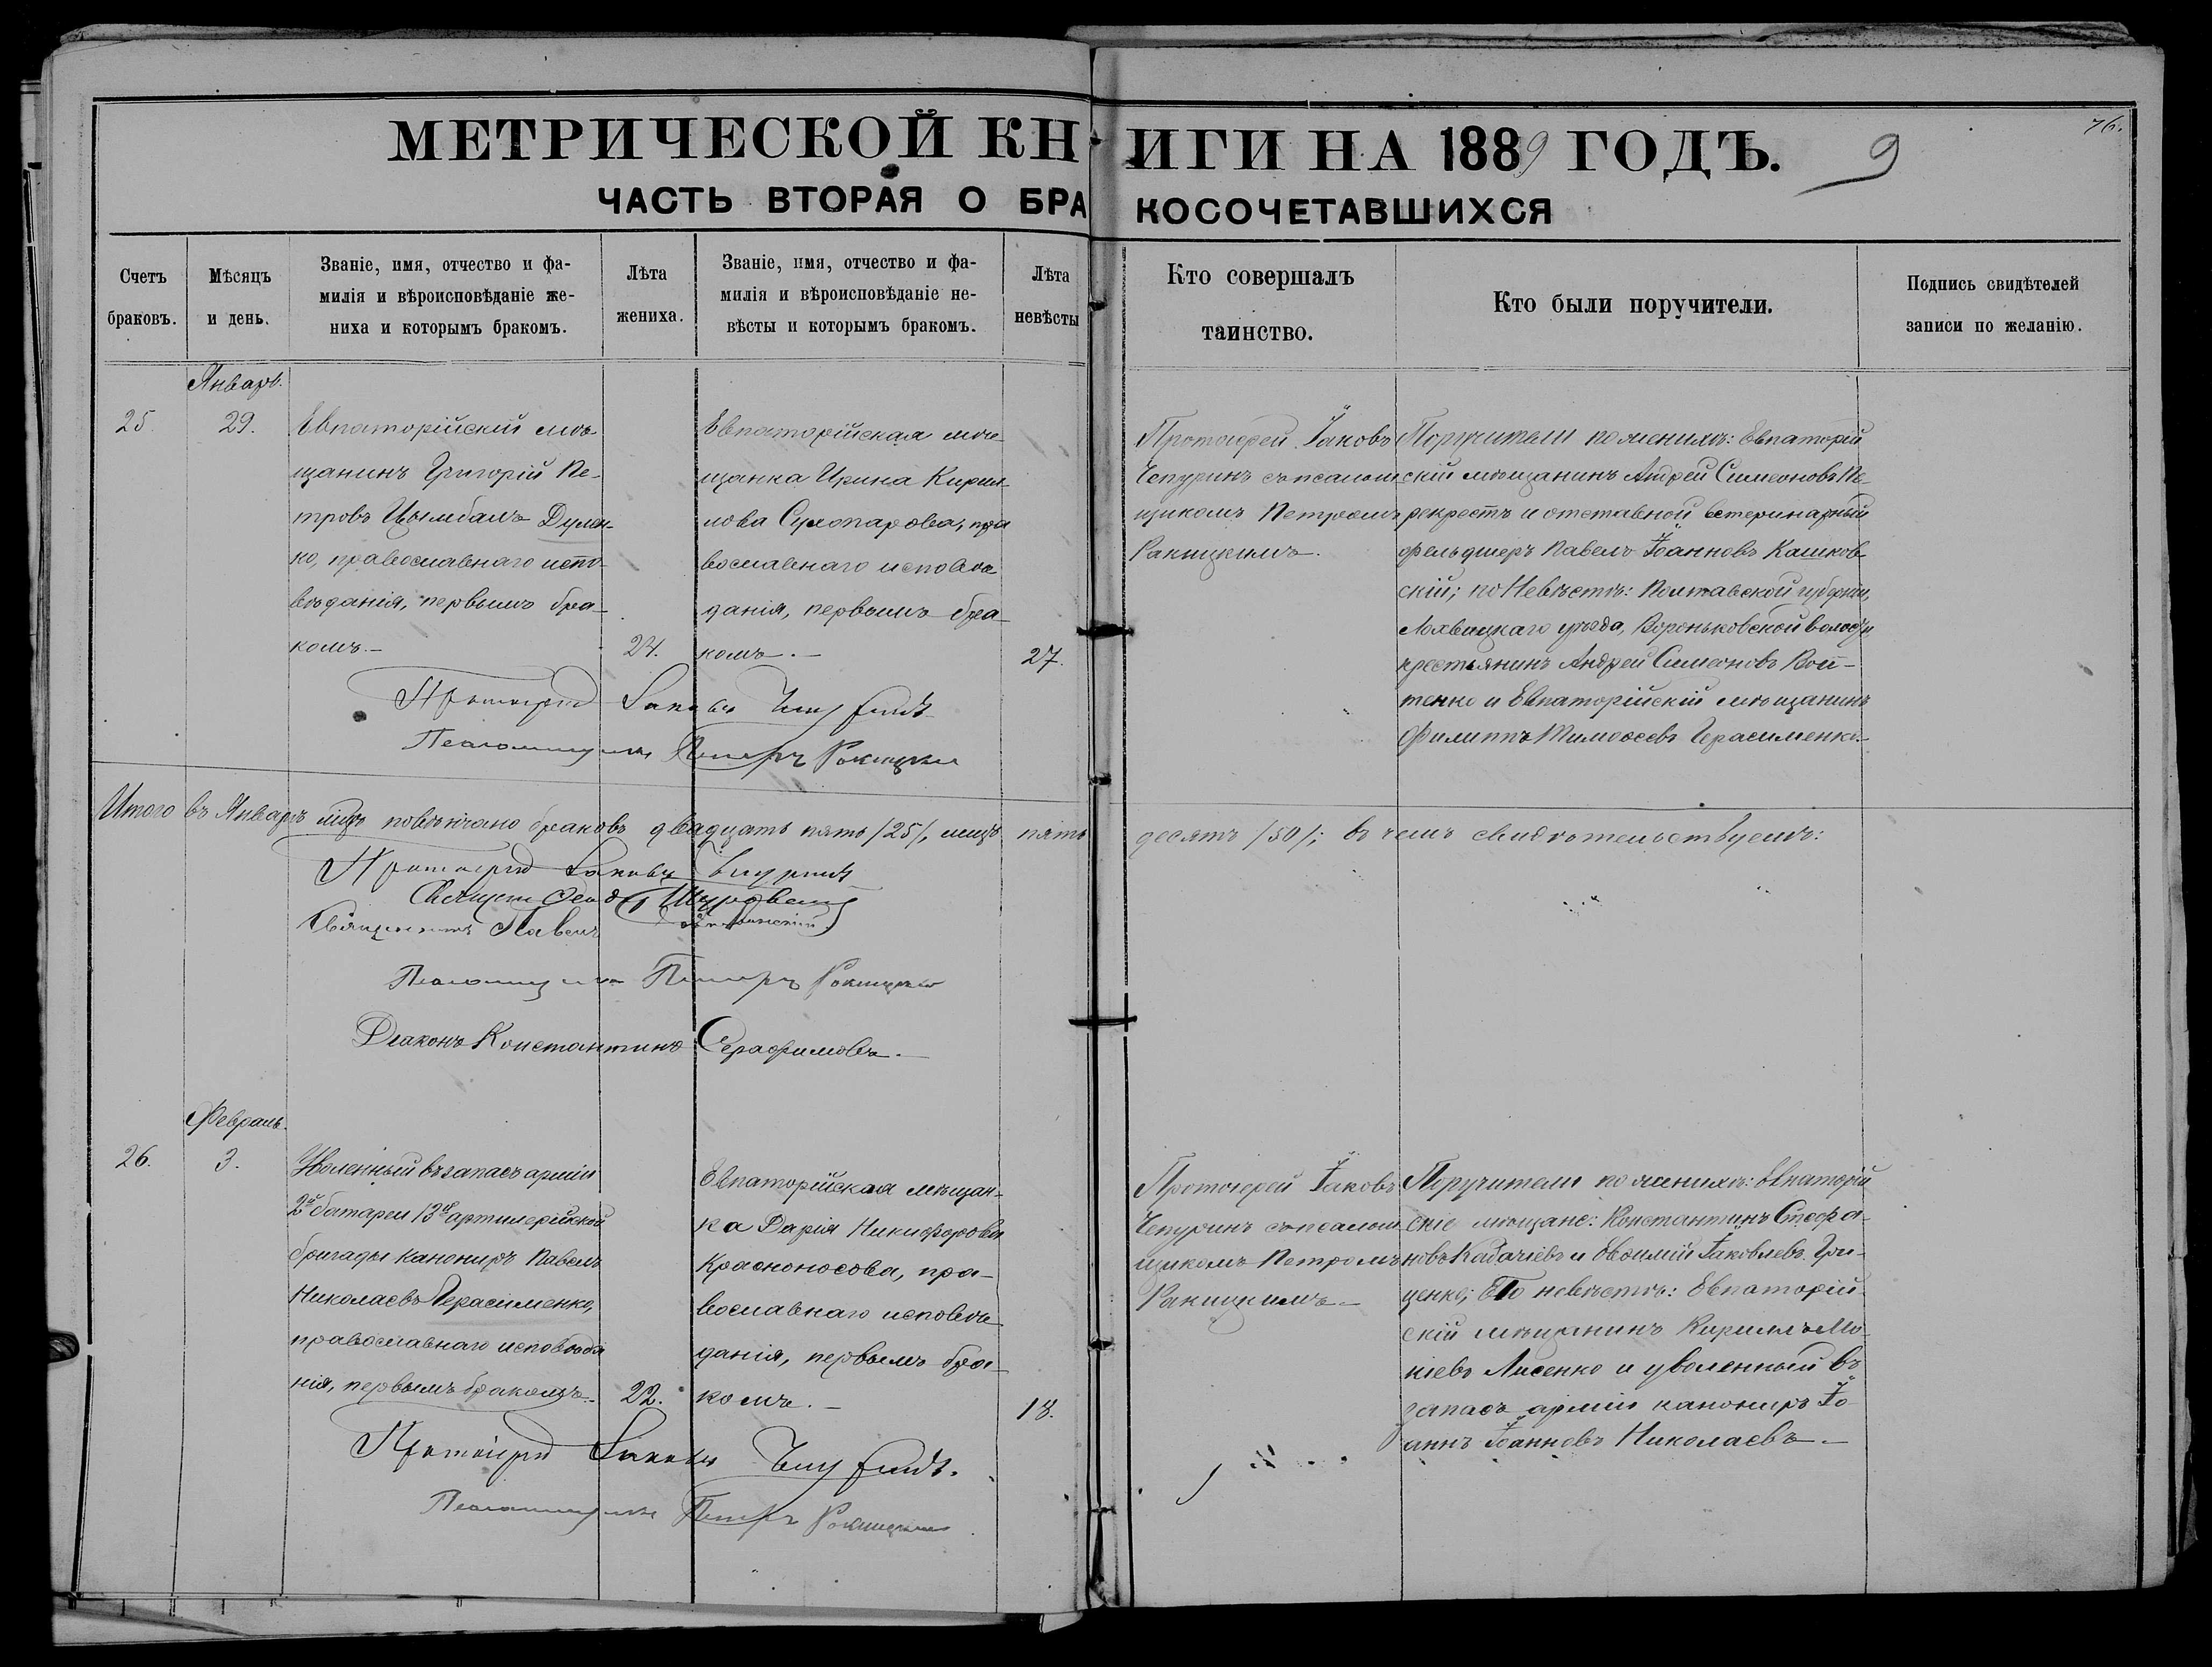 МЕТРИЧЕСКОЙ КНИГИ НА 1889 ГОДЪ. 9
76.
ЧАСТЬ ВТОРАЯ О БРАКОСОЧЕТАВШИХСЯ
Счетъ
браковъ.
Мѣсяцъ
и день.
Званіе, имя, отчество и фа-
милія и вѣроисповѣданіе же-
ниха и которымъ бракомъ.
Лѣта
жениха.
Званіе, имя, отчество и фа-
милія и вѣроисповѣданіе не-
вѣсты и которымъ бракомъ.
Лѣта
невѣсты
Кто совершалъ
таинство.
Кто были поручители.
Подпись свидѣтелей
записи по желанію.
Январь.
25.
29.
Евпаторійскій мѣ-
щанинъ Григорій Пе-
тровъ Цымбалъ Дулен-
ко, православнаго испо-
вѣданія, первымъ бра-
комъ.-
24.
Евпаторійская мѣ-
щанка Ирина Кирил-
лова Сухопарова, пра
вославнаго исповѣ
данія, первымъ бра-
комъ.-
27.
Протоіерей Іаковъ
Чепуринъ съ псалом
щикомъ Петромъ
Ракицкимъ.
Поручители по женихѣ: Евпаторій
скій мѣщанинъ Андрей Симеоновъ Пе-
рекрестъ и отставной ветеринарный
фельдшеръ Павелъ Іоанновъ Кашков-
скій; по Невѣстѣ: Полтавской губерніи,
Лохвицкаго уѣзда, Вороньковской волости
крестьянинъ Андрей Симеоновъ Вой-
тенко и Евпаторійскій мѣщанинъ
Филиппъ Тимоѳеевъ Герасименко.-
Протоіерей Іаковъ Чепуринъ
Псаломщикъ Петръ Ракицкій
Итого въ Январѣ мцѣ повѣнчано браковъ двадцать пять /25/, лицъ пять
десятъ /50/; въ чемъ свидѣтельствуемъ:
Протоіерей Іаковъ Чепуринъ
Священ
Священникъ Павелъ
Псаломщикъ Петръ Ракицкій
Діаконъ Константинъ Серафимовъ.
Февраль.
26.
3.
Уволенный въ запасъ арміи
2й батареи 13й артилерійской
бригады канониръ Павелъ
Николаевъ Герасименко,
православнаго исповѣда
нія, первымъ бракомъ.-
22.
Евпаторійская мѣщан-
ка Дарія Никифорова
Красноносова, пра-
вославнаго исповѣ
данія, первымъ бра-
комъ.-
18.
Протоіерей Іаковъ
Чепуринъ съ псалом
щикомъ Петромъ
Ракицкимъ.-
Поручители по женихѣ: Евпаторій
скіе мѣщане: Константинъ Стефа-
новъ и Евѳимій Іаковлевъ Гри-
ценко; По невѣстѣ: Евпаторій
скій мѣщанинъ Кириллъ Мо-
кіевъ Лисенко и уволенный въ
запасъ арміи канониръ Іо-
аннъ Іоанновъ Николаевъ.-
Протоіерей Іаковъ Чепуринъ.
Псаломщикъ Петръ Ракицкій